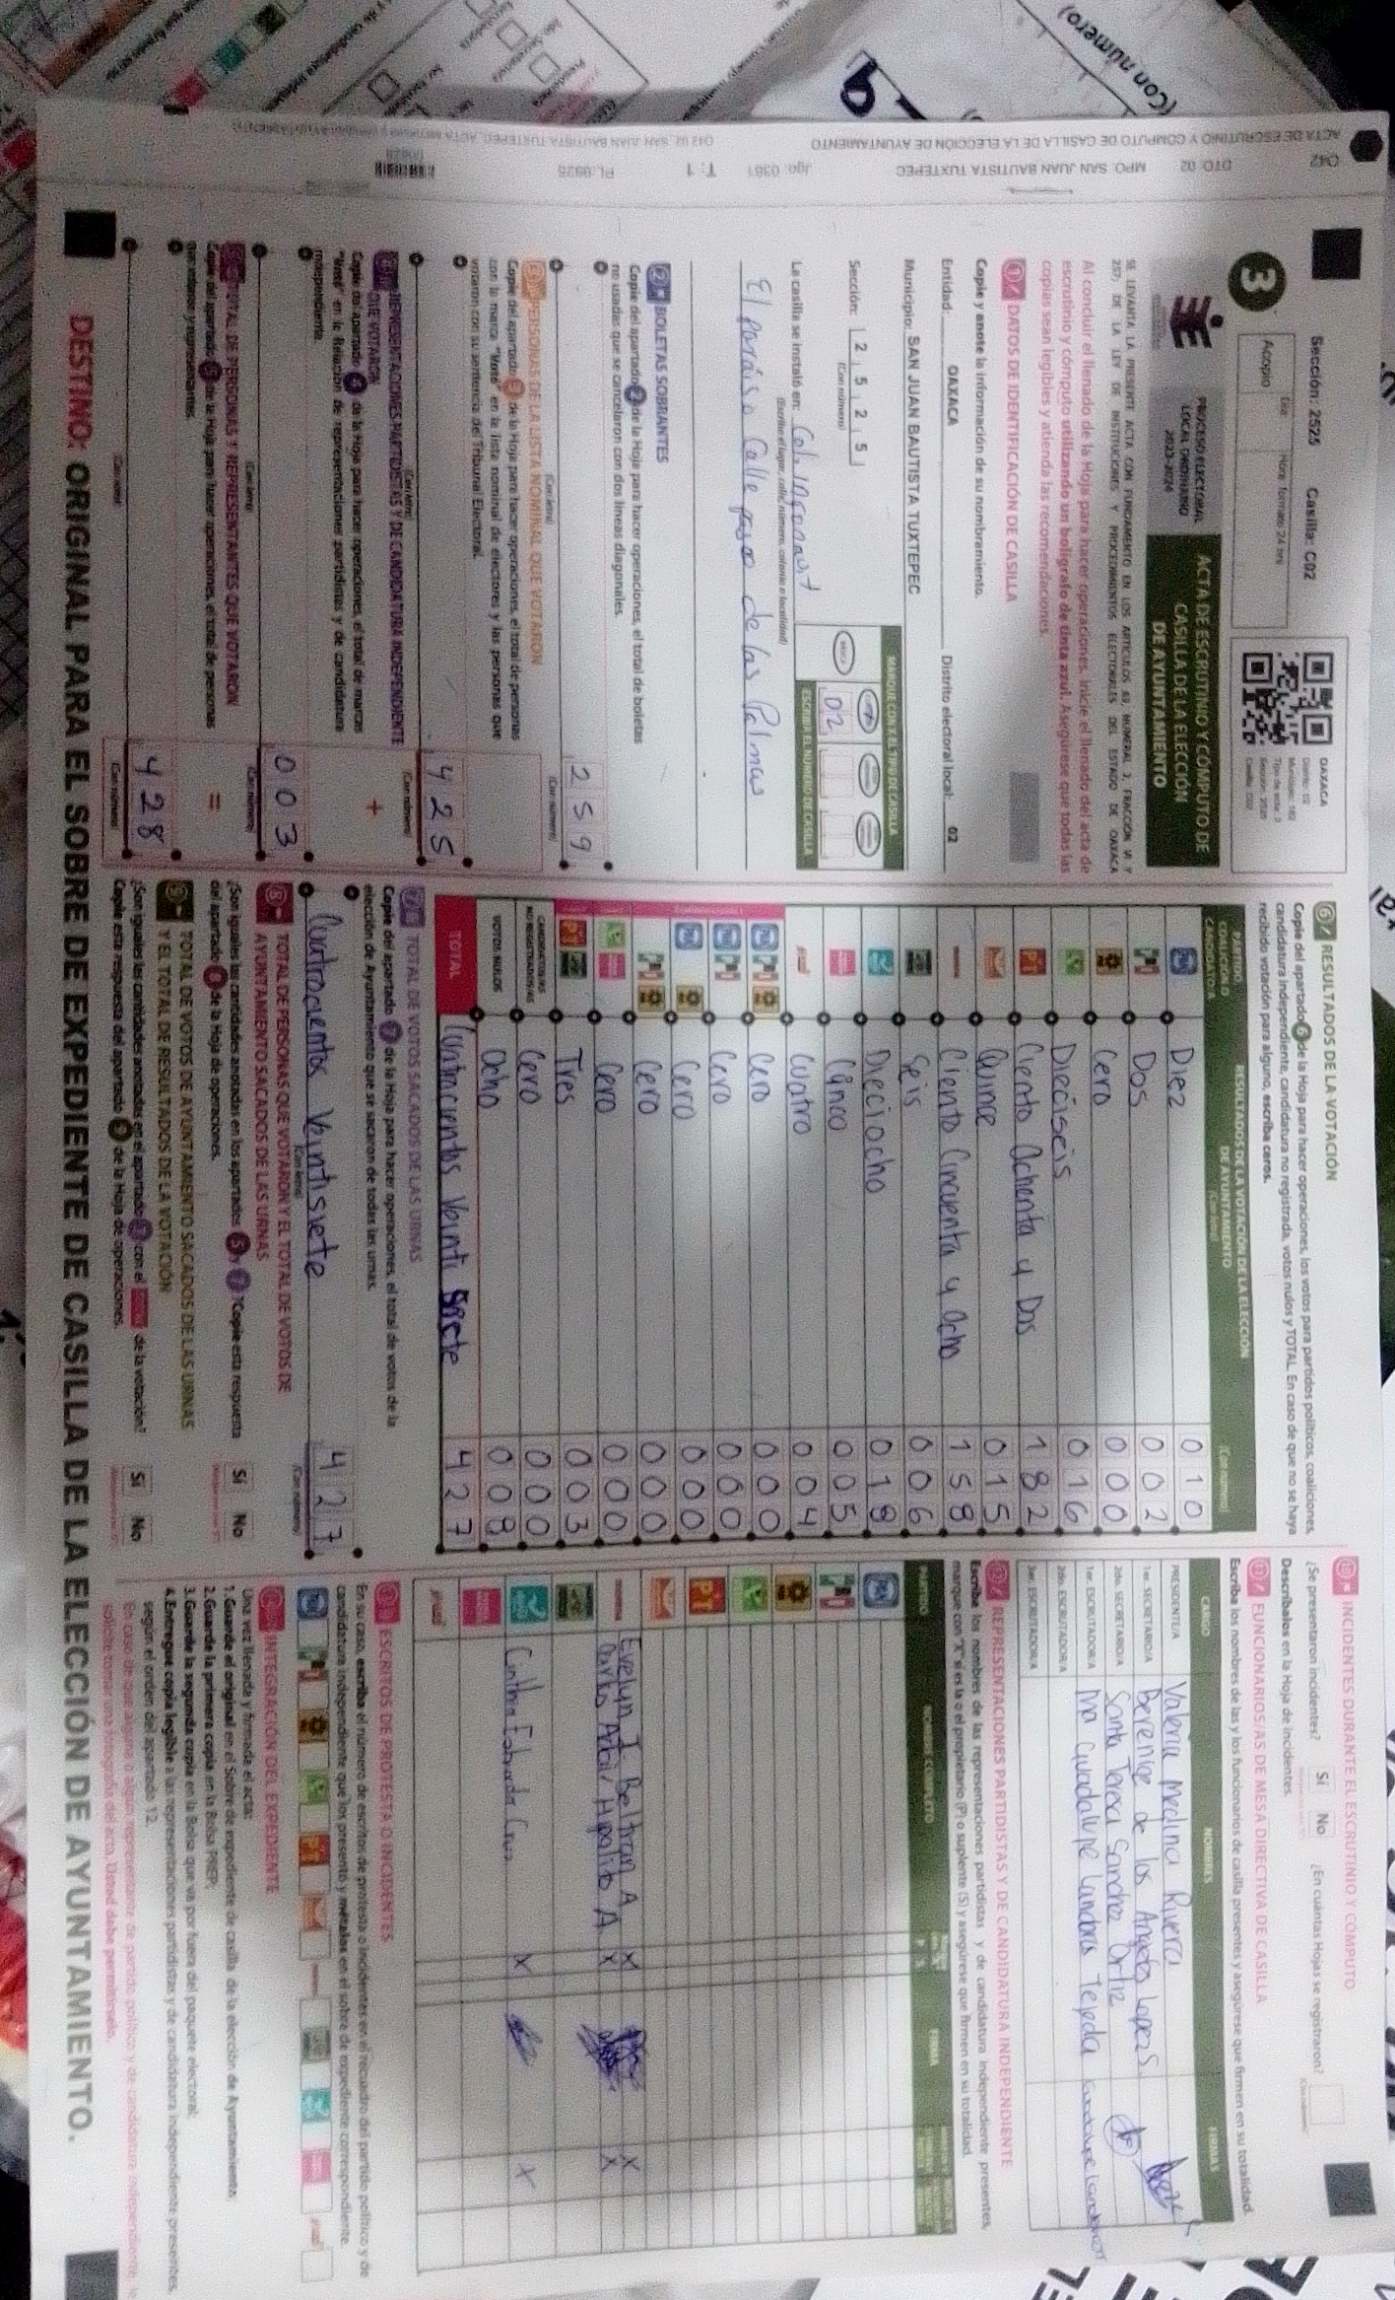 Sección: 2525 Casilla: C02
3
Acopio
Día Hora formato 24 hrs
OAXACA
Distrito: 02
Sección: 2525
Casilla: C02
PROCESO ELECTORAL
LOCAL ORDINARIO
2023-2024
ACTA DE ESCRUTINIO Y CÓMPUTO DE
CASILLA DE LA ELECCIÓN
DE AYUNTAMIENTO
Al concluir el llenado de la Hoja para hacer operaciones, inicie el llenado del acta de
escrutinio y cómputo utilizando un bolígrafo de tinta azul. Asegúrese que todas las
copias sean legibles y atienda las recomendaciones.
1 DATOS DE IDENTIFICACIÓN DE CASILLA
Copie y anote la información de su nombramiento.
Entidad: OAXACA Distrito electoral local: 02
Municipio: SAN JUAN BAUTISTA TUXTEPEC
Sección: 2 5 2 5
(Con número)
MARQUE CON X EL TIPO DE CASILLA
02
ESCRIBA EL NÚMERO DE CASILLA
La casilla se instaló en:
El paraíso Calle paseo de las Palmas
2 BOLETAS SOBRANTES
Copie del apartado 2 de la Hoja para hacer operaciones, el total de boletas
no usadas que se cancelaron con dos líneas diagonales.
259
3 PERSONAS DE LA LISTA NOMINAL QUE VOTARON
Copie del apartado 3 de la Hoja para hacer operaciones, el total de personas
con la marca "Votó" en la lista nominal de electores y las personas que
votaron con su sentencia del Tribunal Electoral.
425
REPRESENTACIONES PARTIDISTAS Y DE CANDIDATURA INDEPENDIENTE
QUE VOTARON
Copie del apartado 4 de la Hoja para hacer operaciones, el total de marcas
"Votó" en la Relación de representaciones partidistas y de candidatura
independiente.
+
003
TOTAL DE PERSONAS Y REPRESENTANTES QUE VOTARON
Copie del apartado 5 de la Hoja para hacer operaciones, el total de personas
que votaron y representantes.
=
428
6 RESULTADOS DE LA VOTACIÓN
Copie del apartado 6 de la Hoja para hacer operaciones, los votos para partidos políticos, coaliciones,
candidatura independiente, candidatura no registrada, votos nulos y TOTAL. En caso de que no se haya
recibido votación para alguno, escriba ceros.
PARTIDO, COALICIÓN O CANDIDATO/A
RESULTADOS DE LA VOTACIÓN DE LA ELECCIÓN
DE AYUNTAMIENTO
PAN Diez 010
Dos 002
Cero 000
Dieciseis 016
PT Ciento Ochenta y Dos 182
Quince 015
Ciento Cincuenta y Ocho 158
Seis 006
Dieciocho 018
Cinco 005
Cuatro 004
Cero 000
Cero 000
Cero 000
Cero 000
Cero 000
PT Tres 003
CANDIDATURAS NO REGISTRADAS Cero 000
VOTOS NULOS Ocho 008
TOTAL Cuatrocientos Veinti Siete 427
7 TOTAL DE VOTOS SACADOS DE LAS URNAS
Copie del apartado 7 de la Hoja para hacer operaciones, el total de votos de la
elección de Ayuntamiento que se sacaron de todas las urnas.
Cuatrocientos Veintisiete 427
8 TOTAL DE PERSONAS QUE VOTARON Y EL TOTAL DE VOTOS DE
AYUNTAMIENTO SACADOS DE LAS URNAS
¿Son iguales las cantidades anotadas en los apartados 5 y 7? Copie esta respuesta
del apartado 8 de la Hoja de operaciones.
Sí No
9 TOTAL DE VOTOS DE AYUNTAMIENTO SACADOS DE LAS URNAS
Y EL TOTAL DE RESULTADOS DE LA VOTACIÓN
¿Son iguales las cantidades anotadas en el apartado 7 con el TOTAL de la votación?
Copie esta respuesta del apartado 9 de la Hoja de operaciones.
Sí No
10 INCIDENTES DURANTE EL ESCRUTINIO Y CÓMPUTO
¿Se presentaron incidentes? Sí No ¿En cuántas Hojas se registraron?
Descríbalos en la Hoja de incidentes.
11 FUNCIONARIOS/AS DE MESA DIRECTIVA DE CASILLA
Escriba los nombres de las y los funcionarios de casilla presentes y asegúrese que firmen en su totalidad.
CARGO NOMBRES FIRMAS
PRESIDENTE/A Valeria Medina Rivera
1er. SECRETARIO/A Berenice de los Angeles Lopez S.
2do. SECRETARIO/A Santa Teresa Sanchez Ortiz
1er. ESCRUTADOR/A Ma Guadalupe Landeros Tejeda
2do. ESCRUTADOR/A
3er. ESCRUTADOR/A
12 REPRESENTACIONES PARTIDISTAS Y DE CANDIDATURA INDEPENDIENTE
Escriba los nombres de las representaciones partidistas y de candidatura independiente presentes,
marque con "X" si es la o el propietario (P) o suplente (S) y asegúrese que firmen en su totalidad.
PARTIDO NOMBRE COMPLETO FIRMA
Evelyn I. Beltran A. X X
X X
Cinthia Estrada Cruz X X
13 ESCRITOS DE PROTESTA O INCIDENTES
En su caso, escriba el número de escritos de protesta o incidentes en el recuadro del partido político y de
candidatura independiente que los presentó y métalos en el sobre de expediente correspondiente.
14 INTEGRACIÓN DEL EXPEDIENTE
Una vez llenada y firmada el acta:
1. Guarde el original en el Sobre de expediente de casilla de la elección de Ayuntamiento;
2. Guarde la primera copia en la Bolsa PREP;
3. Guarde la segunda copia en la Bolsa que va por fuera del paquete electoral;
4. Entregue copia legible a las representaciones partidistas y de candidatura independiente presentes,
según el orden del apartado 12.
DESTINO: ORIGINAL PARA EL SOBRE DE EXPEDIENTE DE CASILLA DE LA ELECCIÓN DE AYUNTAMIENTO.
ACTA DE ESCRUTINIO Y CÓMPUTO DE CASILLA DE LA ELECCIÓN DE AYUNTAMIENTO
DTO. 02 MPO. SAN JUAN BAUTISTA TUXTEPEC
(Con número)